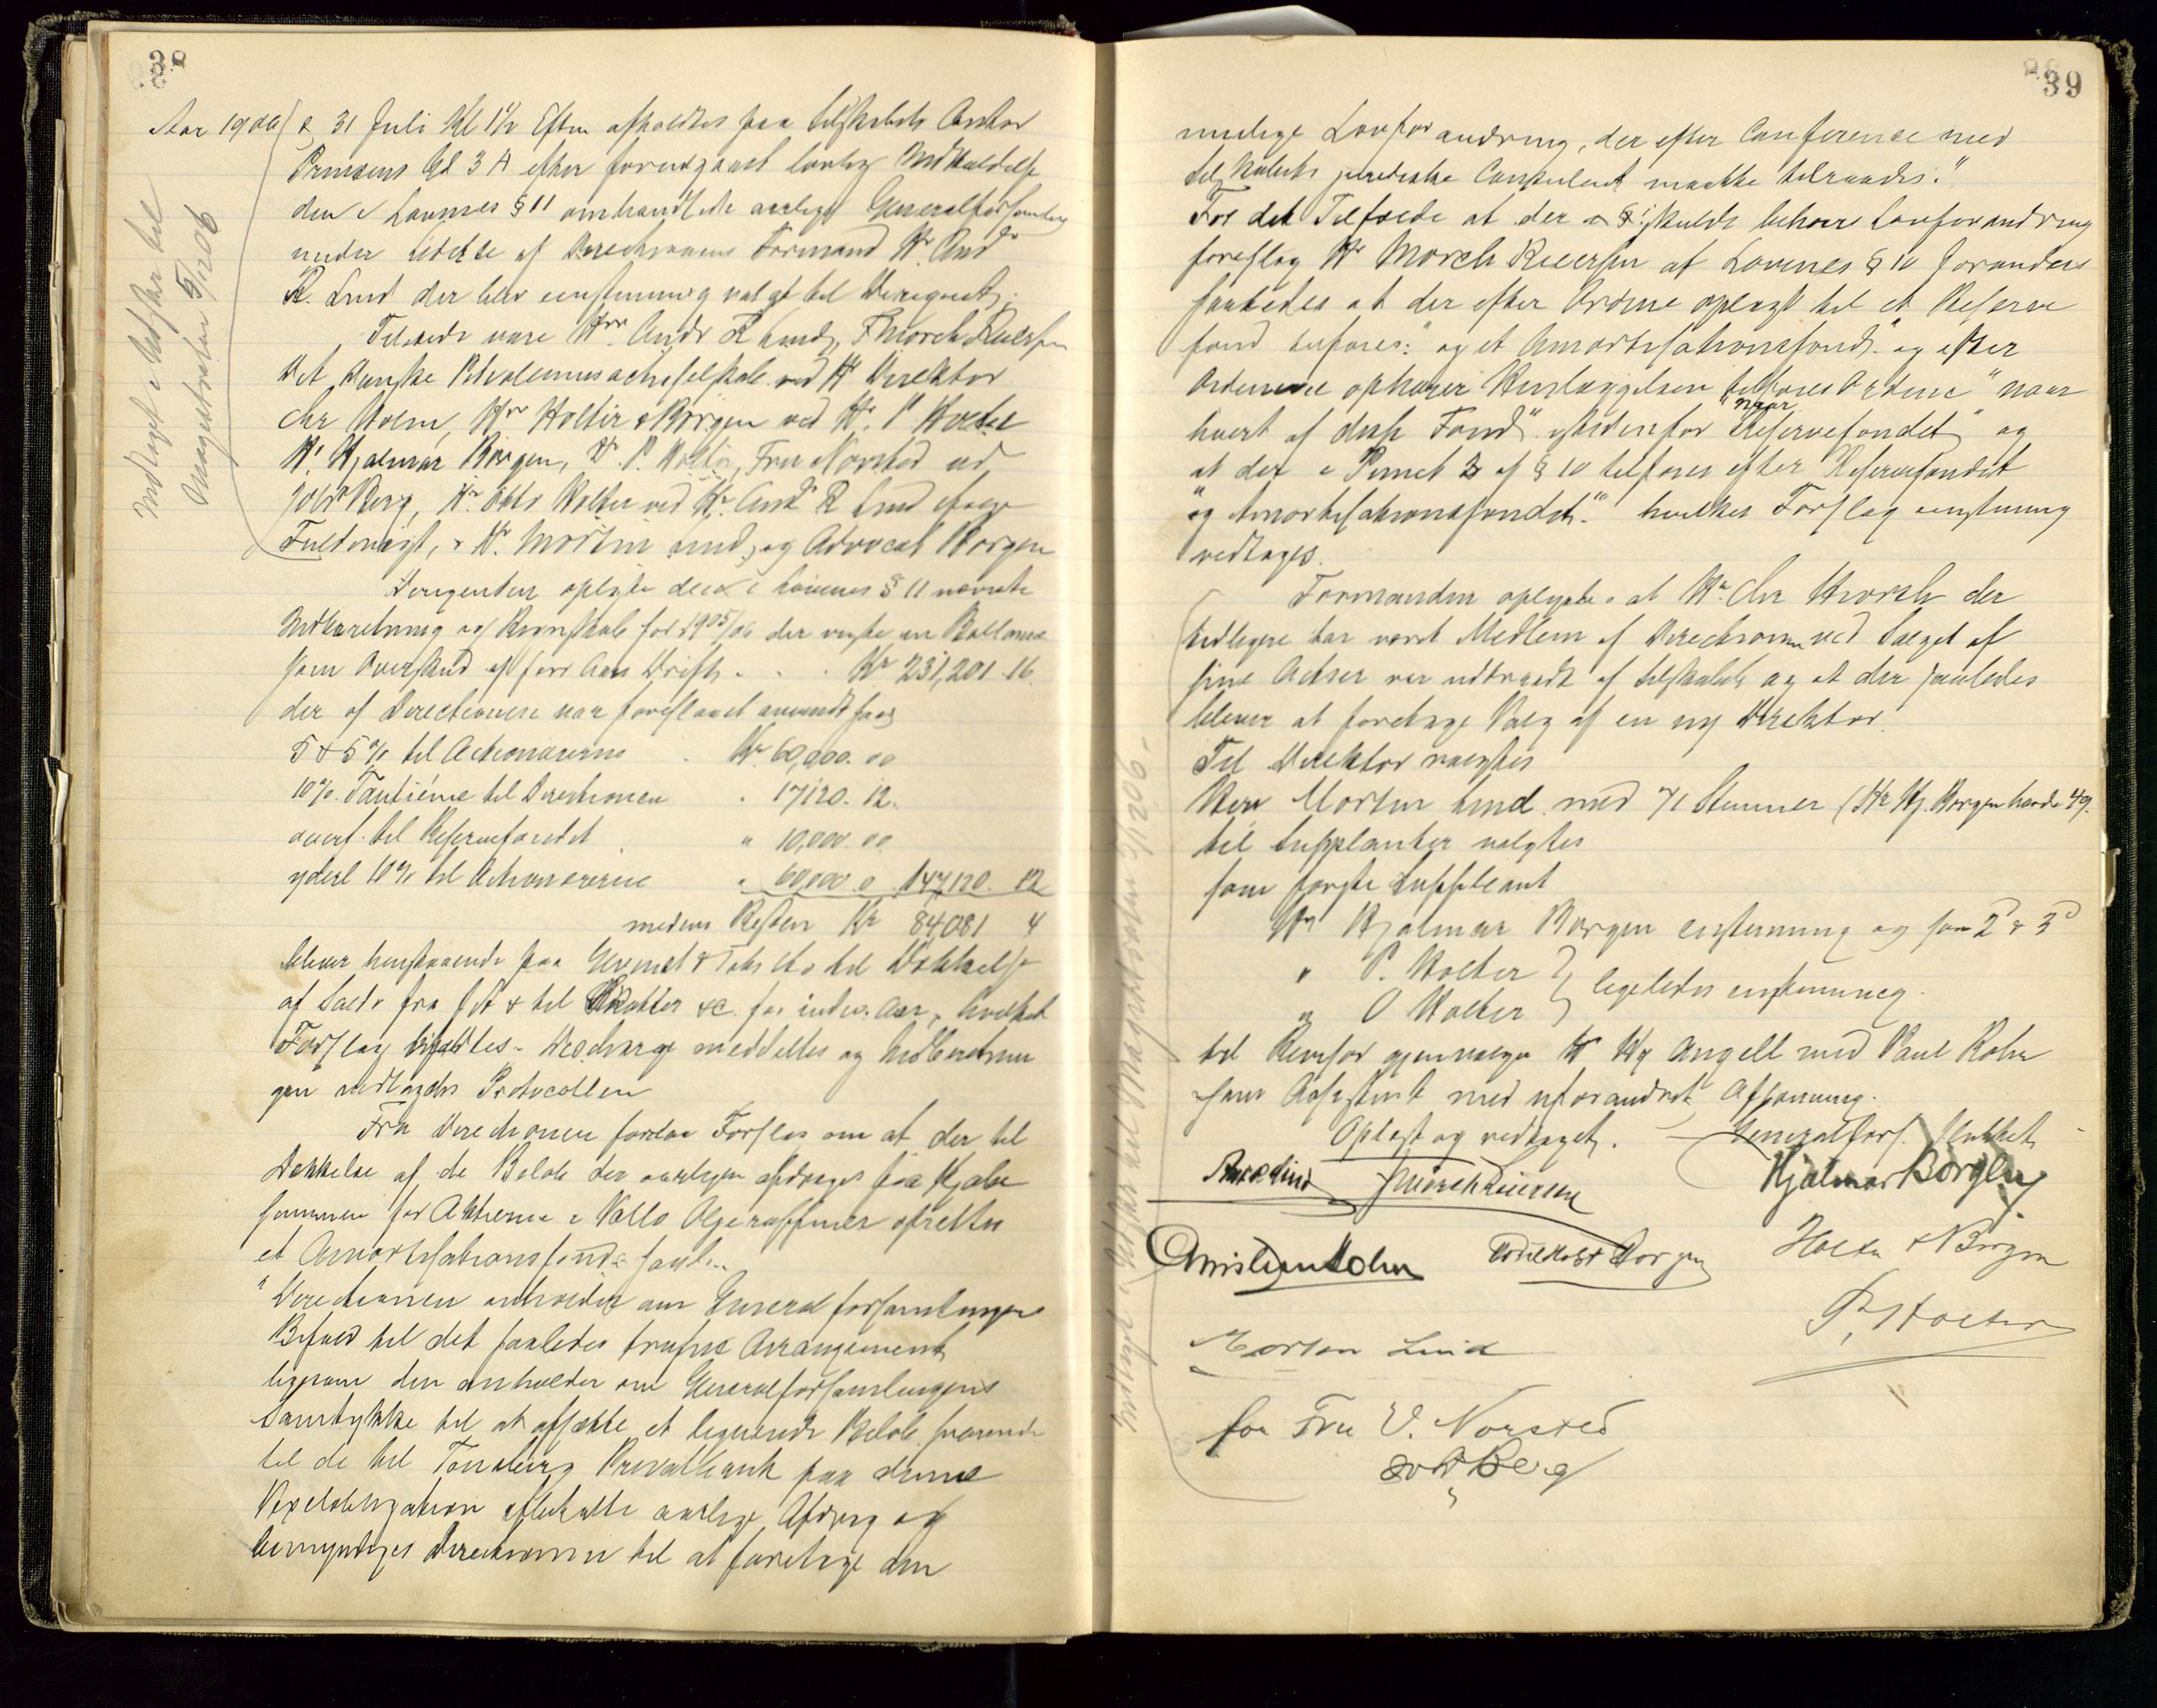 38
Aar 1906 d 31 Juli Kl 1½ Efterm afholdtes paa Selskabets Contor
Prinsens Gd 3 A efter forudgaaet lovlig Indkaldelse
den i Lovenes § 11 omhandlede aarlige Generalforsamling
under Ledelse af Directionens Formand Hr Andr
R. Lund der blev eenstemmig valgt til Dirigent.
Tilstede vare Hrr Andr R Lund, F Mørch Reiersen
Det Danske Petroleumsactieselskab ved Hr Direktør
Chr Holm, Hrr Holter & Borgen ved Hr. P Holter
Hr. Hjalmar Borgen, Hr. P. Holter, Fru Norsted ved
Joh Berg, Hr. Otto Holter ved Hr. Andr R Lund ifølge
Fuldmagt, & Hr. Morten Lund, og Advocat Borgen
Dirigenten oplæste den i Lovenes § 11 nævnte
Indberetning og Regnskab for 1905/06 der viste en Ballance
som Overskud af forr Aars Drift . . . Kr 231,201.16
der af Directionen var foreslaaet anvendt saa
5 + 5 % til Actionærerne . Kr. 60,000.00
10%. Tantième til Directionen . 17120.12
overf. til Reservefondet " 10,000.00
yderl 10% til Actionærerne " 60,000.0 147,120.12
medens Resten Kr 84081 4
bliver henstaaende paa Gevinst & Tabs Cto til Dækkelse
af Saldo fra & til Skatter &c. for indev. Aar, hvilket
Forslag bifaldtes. Decharge meddeltes og Indberetnin
gen vedlægges Protocollen
Fra Directionen forelaa Forslag om at der til
Dækkelse af de Beløb der aarligen afdrages paa Kjøbe
summen for Aktierne i Vallø Oljeraffineri oprettes
et Amortisationsfond.
"Directionen anholder om Generalforsamlingens
Bifald til det saaledes trufne Arrangement,
ligesom den anholder om Generalforsamlingens
Samtykke til at afsætte et lignende Beløb svarende
til de til Tønsberg Privatbank paa denne
Vexelobligation afbetalte aarlige Afdrag og
bemyndiges Directionen til at foretage den
Indtaget i Udskr til
Magistraten 5/12 06
39
mulige Lovforandring, der efter Conference med
Selskabets juridiske Consulent maatte tilraades."
For det Tilfælde at der skulde behøves Lovforandring
foreslog Hr Mørch Reiersen at Lovenes § 10 forandres
saaledes at der efter Ordene oplagt til et Reserve
fond tilføies: "og et Amortisationsfond" og efter
Ordene ophører Henlæggelsen tilføies Ordene "naar
hvert af disse Fond" istedenfor "naar Reservefondet" og
at der i Punct 3 af § 10 tilføies efter Reservefondet
"og Amortisationsfondet." hvilket Forslag eenstemmig
vedtages.
Formanden oplyste at Hr. Chr Hvorslev der
tidligere har været Medlem af Directionen ved Salget af
sine Actier var udtraadt af Selskabet og at der saaledes
bliver at foretage Valg af en ny Direktør.
Til Direktør valgtes
Herr Morten Lund med 71 Stemmer (Hr Hj. Borgen havde 49.
til Suppleanter valgtes
som første Suppleant
Hr Hjalmar Borgen enstemmig og som 2d & 3d
" P. Holter
" O Holter } ligeledes enstemmig.
til Revisor gjenvalges Hr Hj Angell med Paul Rohn
som Assistent med uforandret Aflønning.
Oplæst og vedtaget. — Generalfors. sluttet
Andr R Lund F Mørch Reiersen Hjalmar Borgen
Christian Holm Borgen Holter & Borgen
P. Holter
Morten Lund
for Fru V. Norsted
Joh Berg
Indtaget i Udskr til Magistraten 5/12 06.